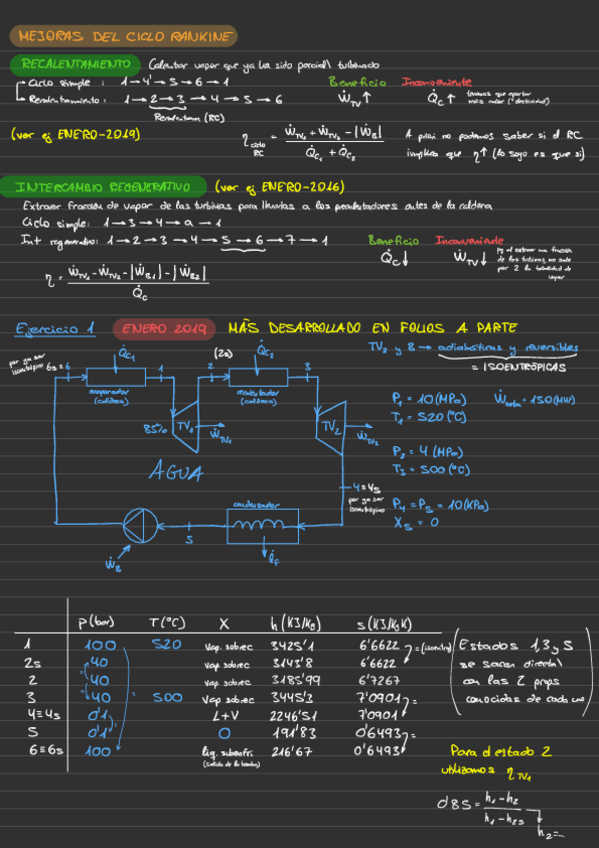 MEJORAS DEL CICLO RANKINE
RECALENTAMIENTO Calentar vapor que ya ha sido parcial/ turbinado
Ciclo simple : 1→4'→5→6→1
Recalentamiento: 1→2→3→4→5→6
Recalentam (RC)
Beneficio Inconveniente
ẆTV↑ Q̇c↑ tenemos que aportar más calor
(ver ej ENERO-2019)
η ciclo RC = ẆTV1 + ẆTV2 - |ẆB| / Q̇C1 + Q̇C2
A priori no podemos saber si el RC
implica que η↑ (lo suyo es que si)
INTERCAMBIO REGENERATIVO (ver ej ENERO-2016)
Extraer fracción de vapor de las turbinas para llevarlas a los precalentadores antes de la caldera
Ciclo simple: 1→3→4→a→1
Int regenerativo: 1→2→3→4→5→6→7→1
Beneficio Inconveniente
Q̇c↓ ẆTV↓ Pq al extraer una fracción de las turbinas, no sale por 2 la totalidad de vapor
η = ẆTV1 - ẆTV2 - |ẆB1| - |ẆB2| / Q̇C
Ejercicio 1 ENERO 2019 MÁS DESARROLLADO EN FOLIOS A PARTE
TV2 y B → adiabáticas y reversibles
= ISOENTRÓPICAS
por ya ser isoentrópico 6s≡6
Q̇C1 (2s) Q̇C2
6 1 2 3
evaporador (caldera)
recalentador (caldera)
85% TV1 ẆTV1
TV2 ẆTV2
AGUA
4≡4s
por ya ser isoentrópico
condensador
5
ẆB Q̇F
P1 = 10 (MPa) Ẇneta = 150 (MW)
T1 = 520 (°C)
P2 = 4 (MPa)
T3 = 500 (°C)
P4 = P5 = 10 (KPa)
X5 = 0
P (bar) T (°C) X h (KJ/Kg) s (KJ/KgK)
1 100 520 Vap. sobrec 3425'1 6'6622
2s 40 Vap sobrec 3143'8 6'6622
2 40 Vap sobrec 3185'99 6'7267
3 40 500 Vap sobrec 3445'3 7'0901
4≡4s 0'1 L+V 2246'51 7'0901
5 0'1 0 191'83 0'6493
6≡6s 100 liq. subenfri 216'67 0'6493
(salida de la bomba)
Estados 1, 3 y 5
se sacan directa/
con las 2 props
conocidas de cada uno
Para el estado 2
utilizamos ηTV1
0'85 = h1 - h2 / h1 - h2s
h2 = ...